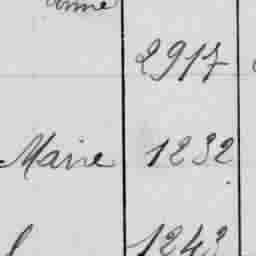 anne
2917
Marie 1232
1243